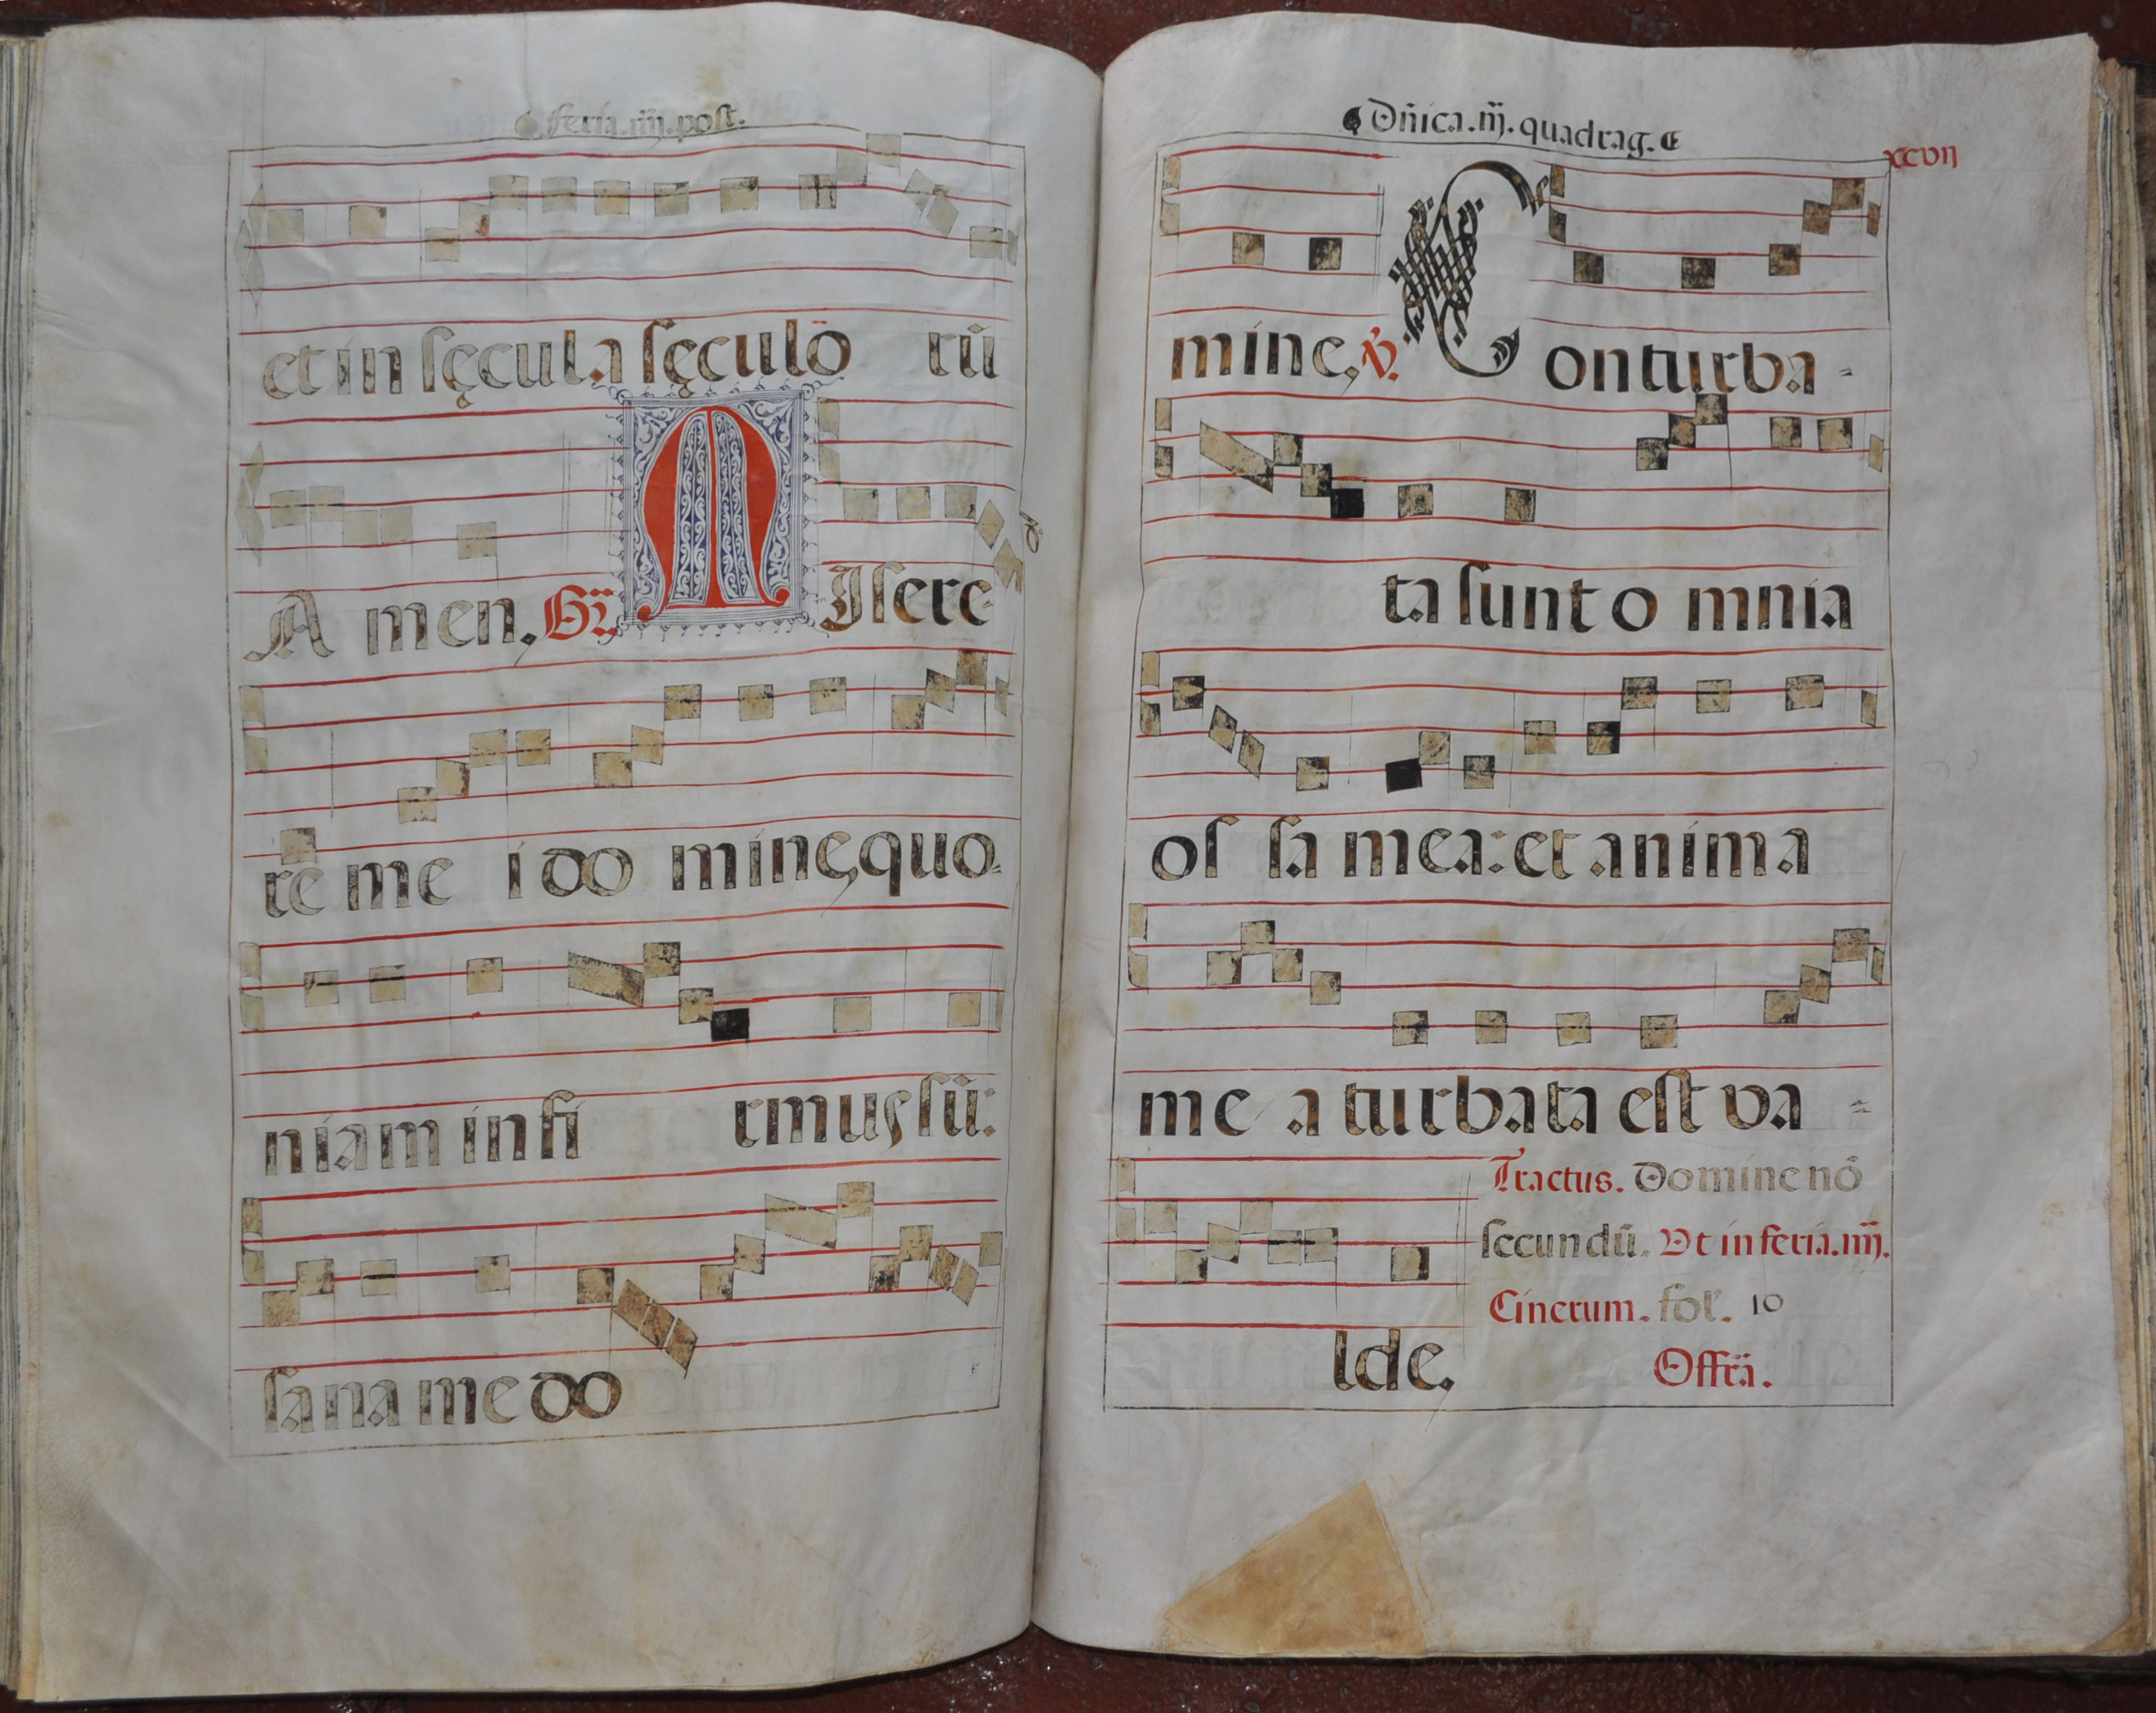 feria.iiij.post.
et in sęcula sęculõ rũ
A men. Gr̃. MIsere-
re me i do mine, quo-
niam infi rmus sũ:
sana me do
Dñica.iij.quadrag.
XCVII
mine, ℣. Conturba-
ta sunt o mnia
os sa mea: et anima
me a turbata est va-
lde,
Tractus. Domine nõ
secundũ. Vt in feria.iiij.
Cinerum. fol'. 10
Offr̃a.